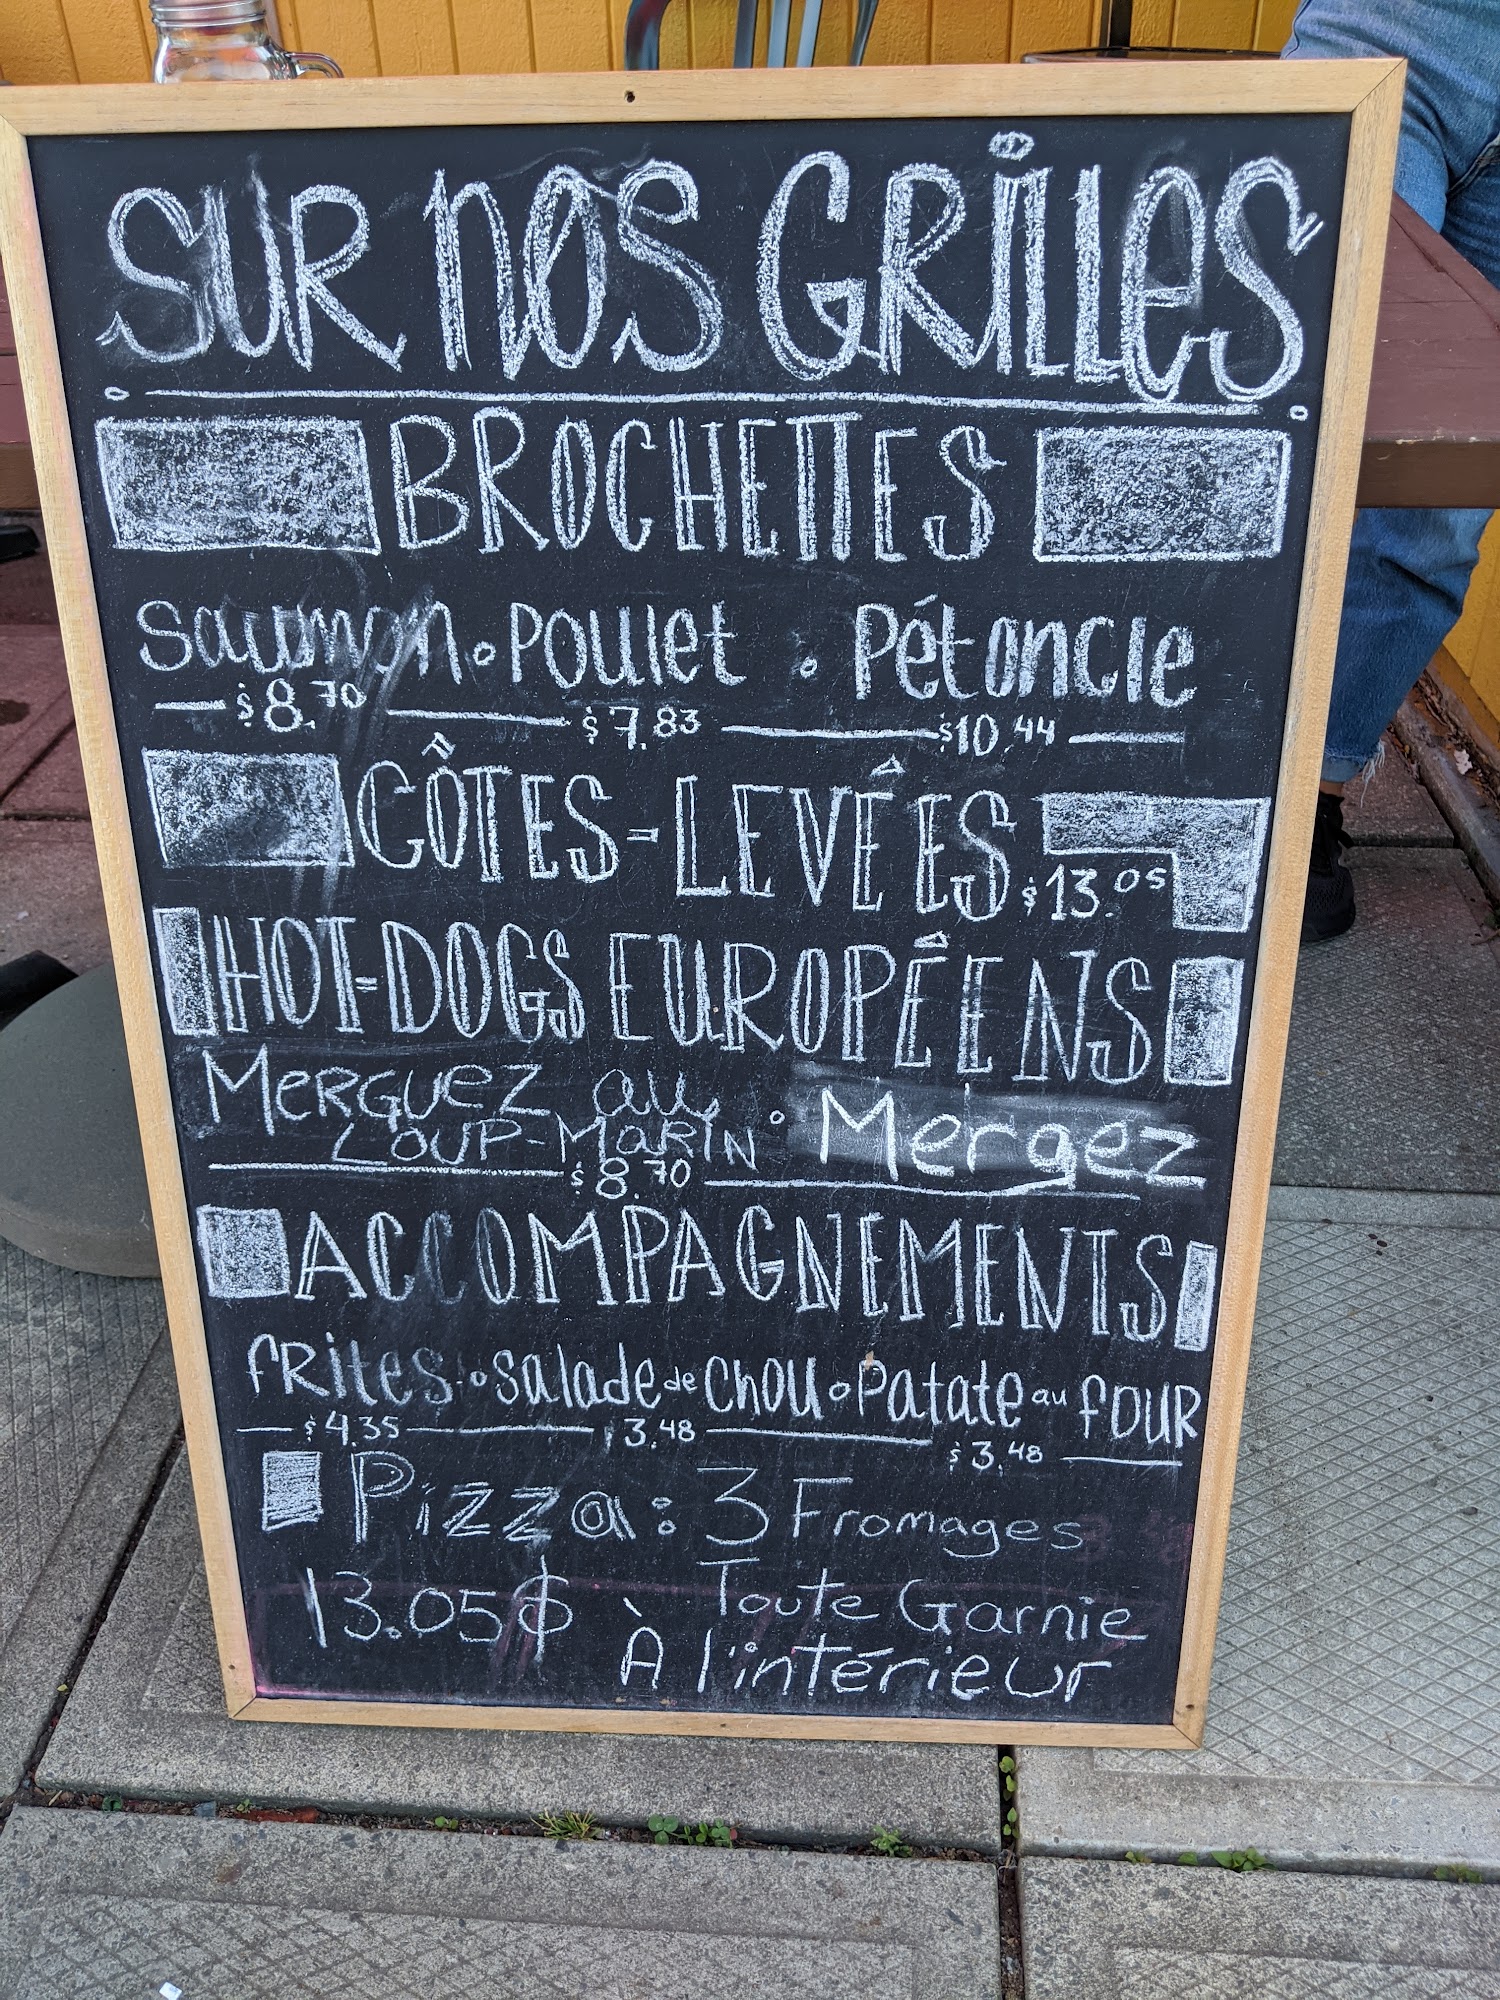 SUR NOS GRILLES
BROCHETTES
Saumon · Poulet · Pétoncle
$8.70 $7.83 $10.44
CÔTES-LEVÉES
$13.05
HOT-DOGS EUROPÉENS
MERGUEZ au · Mergez
LOUP-MARIN
$8.70
ACCOMPAGNEMENTS
FRites · Salade de CHOU · Patate au FOUR
$4.35 3.48 $3.48
Pizza: 3 Fromages
13.05$ Toute Garnie
À l'intérieur